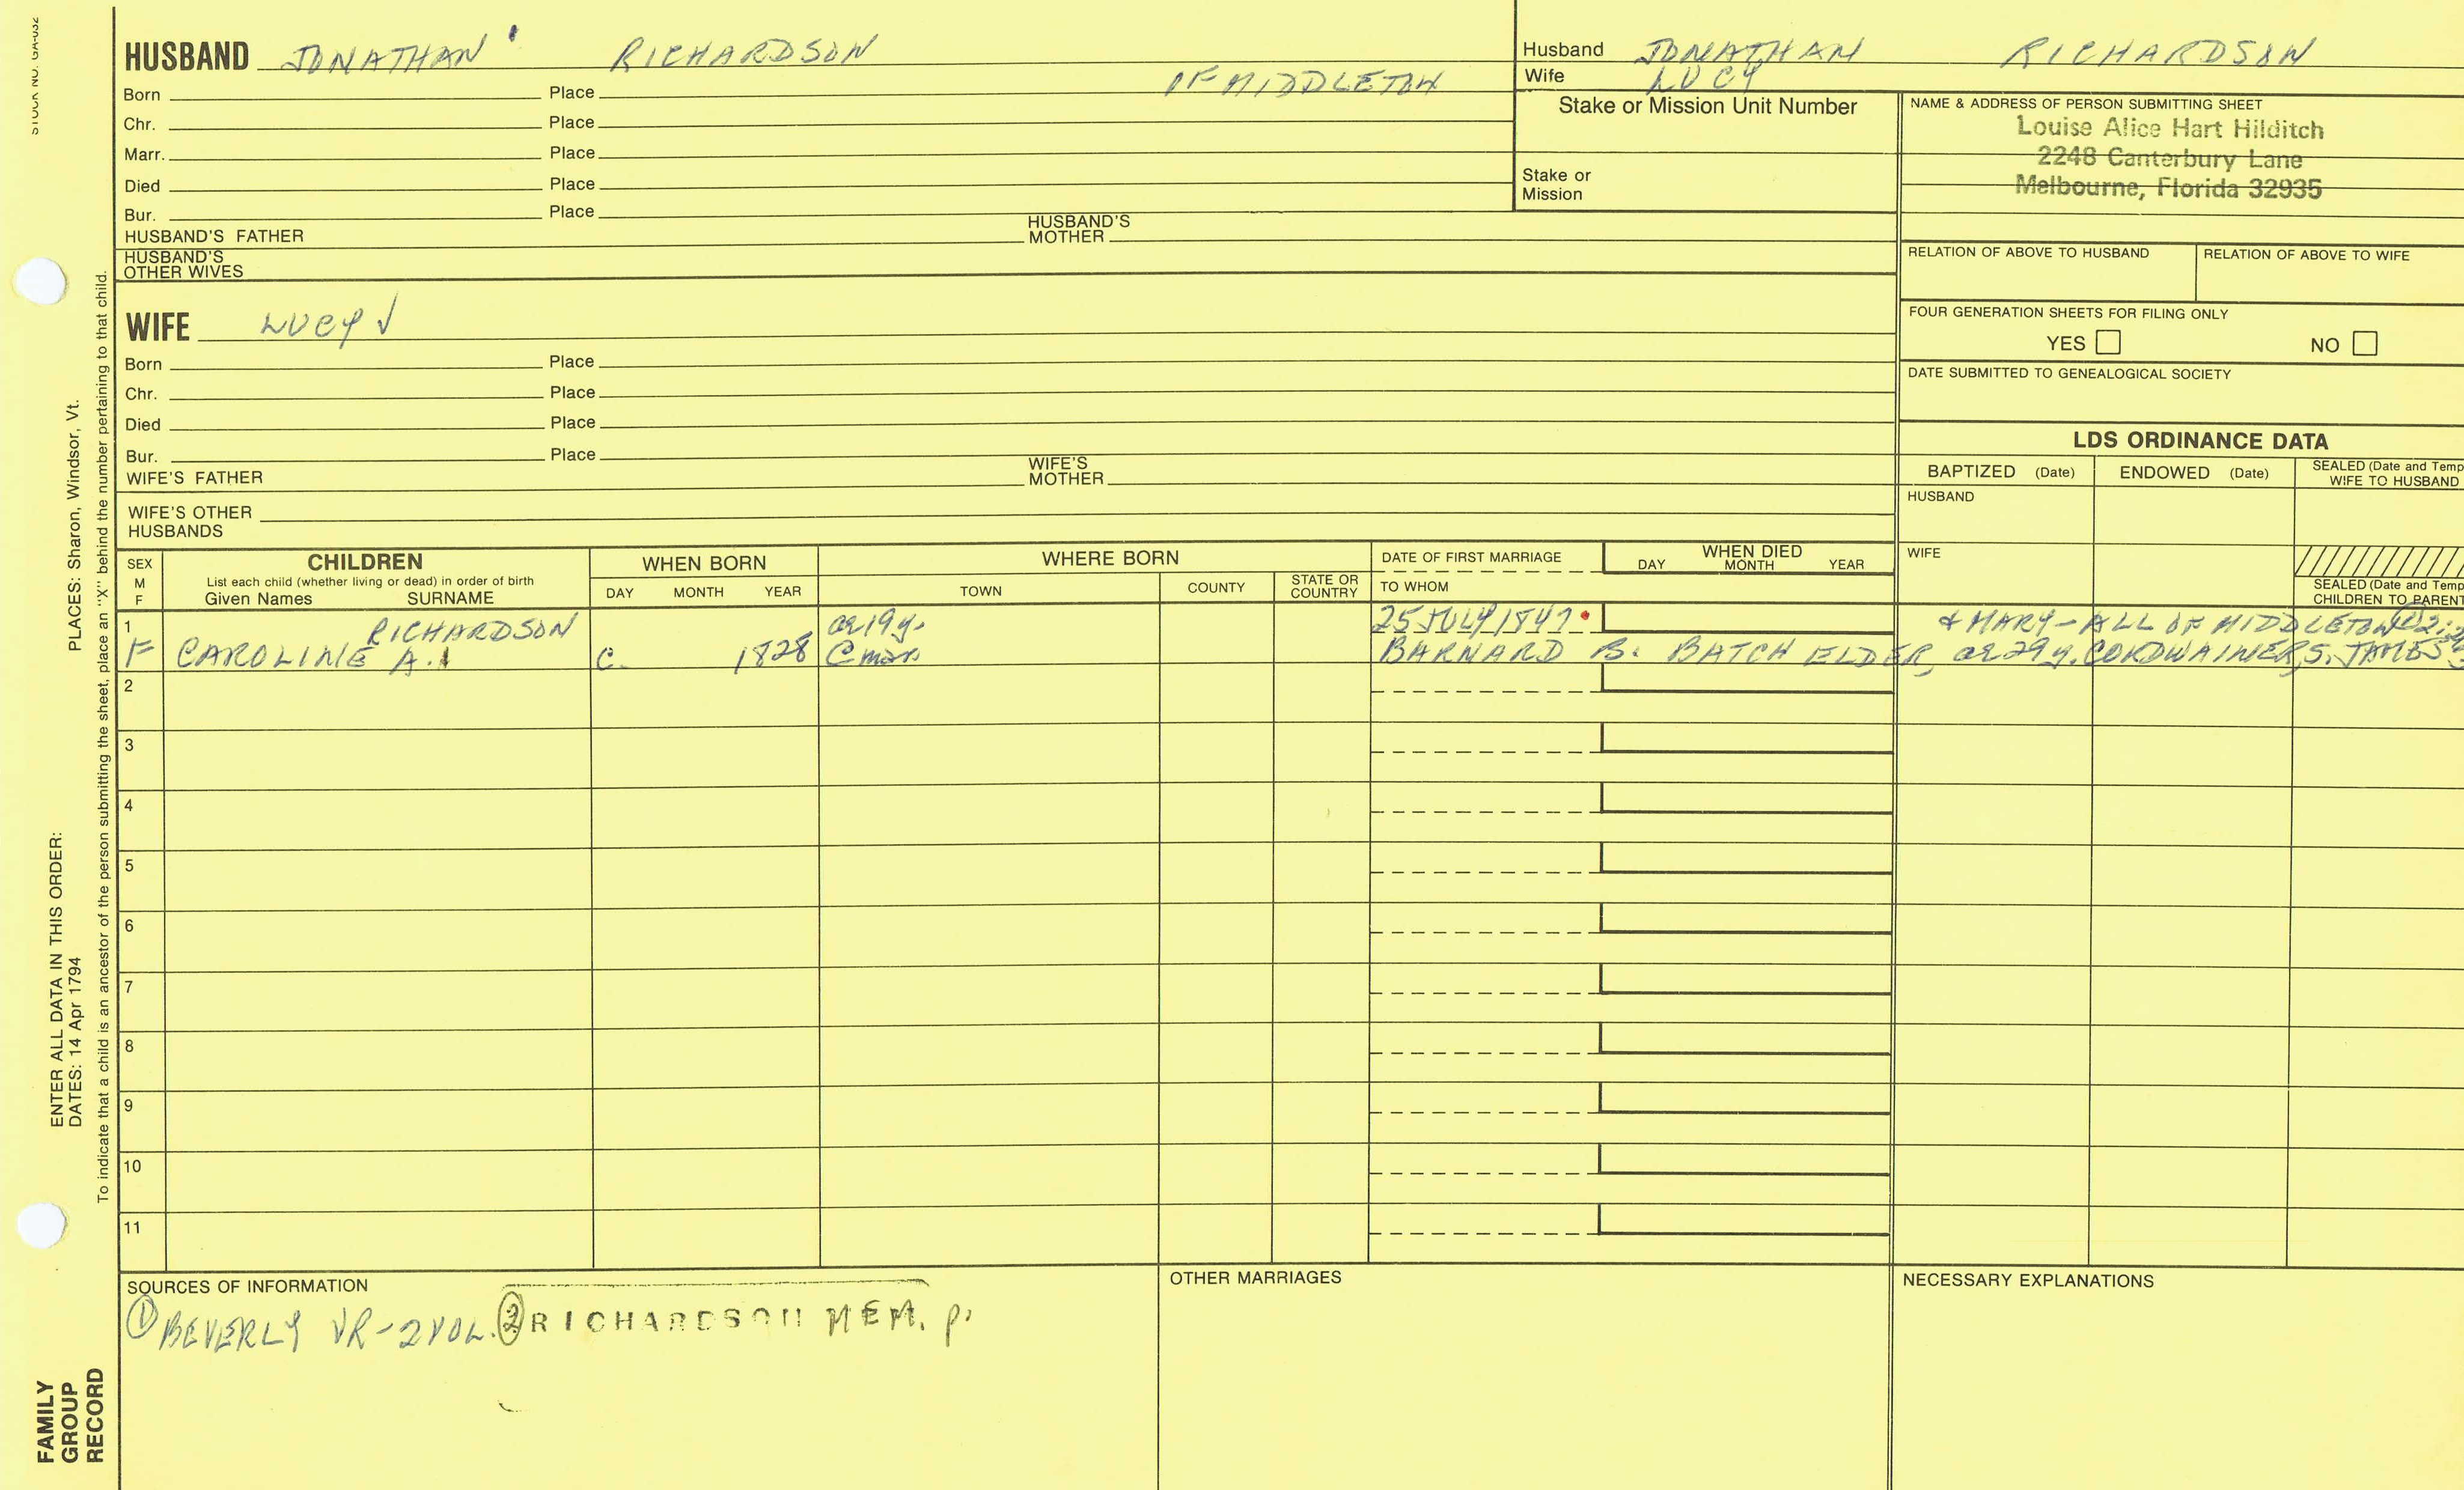 STOCK NO. GA-032
HUSBAND JONATHAN RICHARDSON
OF MIDDLETON
Born Place
Chr. Place
Marr. Place
Died Place
Bur. Place
HUSBAND'S FATHER HUSBAND'S MOTHER
HUSBAND'S OTHER WIVES
Husband JONATHAN RICHARDSON
Wife LUCY
Stake or Mission Unit Number
Stake or Mission
NAME & ADDRESS OF PERSON SUBMITTING SHEET
Louise Alice Hart Hilditch
2248 Canterbury Lane
Melbourne, Florida 32935
RELATION OF ABOVE TO HUSBAND RELATION OF ABOVE TO WIFE
FOUR GENERATION SHEETS FOR FILING ONLY
YES NO
DATE SUBMITTED TO GENEALOGICAL SOCIETY
WIFE LUCY
Born Place
Chr. Place
Died Place
Bur. Place
WIFE'S FATHER WIFE'S MOTHER
WIFE'S OTHER HUSBANDS
LDS ORDINANCE DATA
BAPTIZED (Date) ENDOWED (Date) SEALED (Date and Temp
WIFE TO HUSBAND
HUSBAND
WIFE
SEALED (Date and Temp
CHILDREN TO PARENT
SEX
M
F
CHILDREN
List each child (whether living or dead) in order of birth
Given Names SURNAME
WHEN BORN
DAY MONTH YEAR
WHERE BORN
TOWN COUNTY STATE OR COUNTRY
DATE OF FIRST MARRIAGE
TO WHOM
WHEN DIED
DAY MONTH YEAR
1 RICHARDSON ae 19y. 25 JULY 1847 & MARY - ALL OF MIDDLETON
F CAROLINE A. C. 1828 @ mar BARNARD B. BATCHELDER, ae 29y. CORDWAINER, S. JAMES
2
3
4
5
6
7
8
9
10
11
SOURCES OF INFORMATION
① BEVERLY VR - 2 VOL. ② RICHARDSON MEM. p.
OTHER MARRIAGES
NECESSARY EXPLANATIONS
ENTER ALL DATA IN THIS ORDER:
DATES: 14 Apr 1794 PLACES: Sharon, Windsor, Vt.
To indicate that a child is an ancestor of the person submitting the sheet, place an "X" behind the number pertaining to that child.
FAMILY
GROUP
RECORD